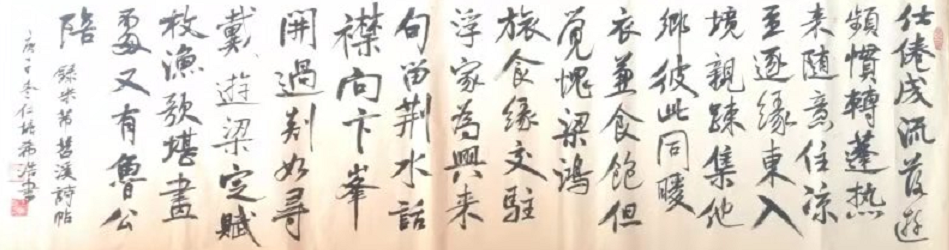 仕倦成流落遊
頻慣轉蓬热
来随意住凉
至逐緣東入
境親疎集他
鄉彼此同暖
衣兼食飽但
覺愧梁鴻
旅食緣交駐
浮家為興来
句留荆水話
襟向卞峯
開過剡如尋
戴遊梁定賦
枚漁歌堪畫
處又有魯公
陪
錄米芾苕溪詩帖